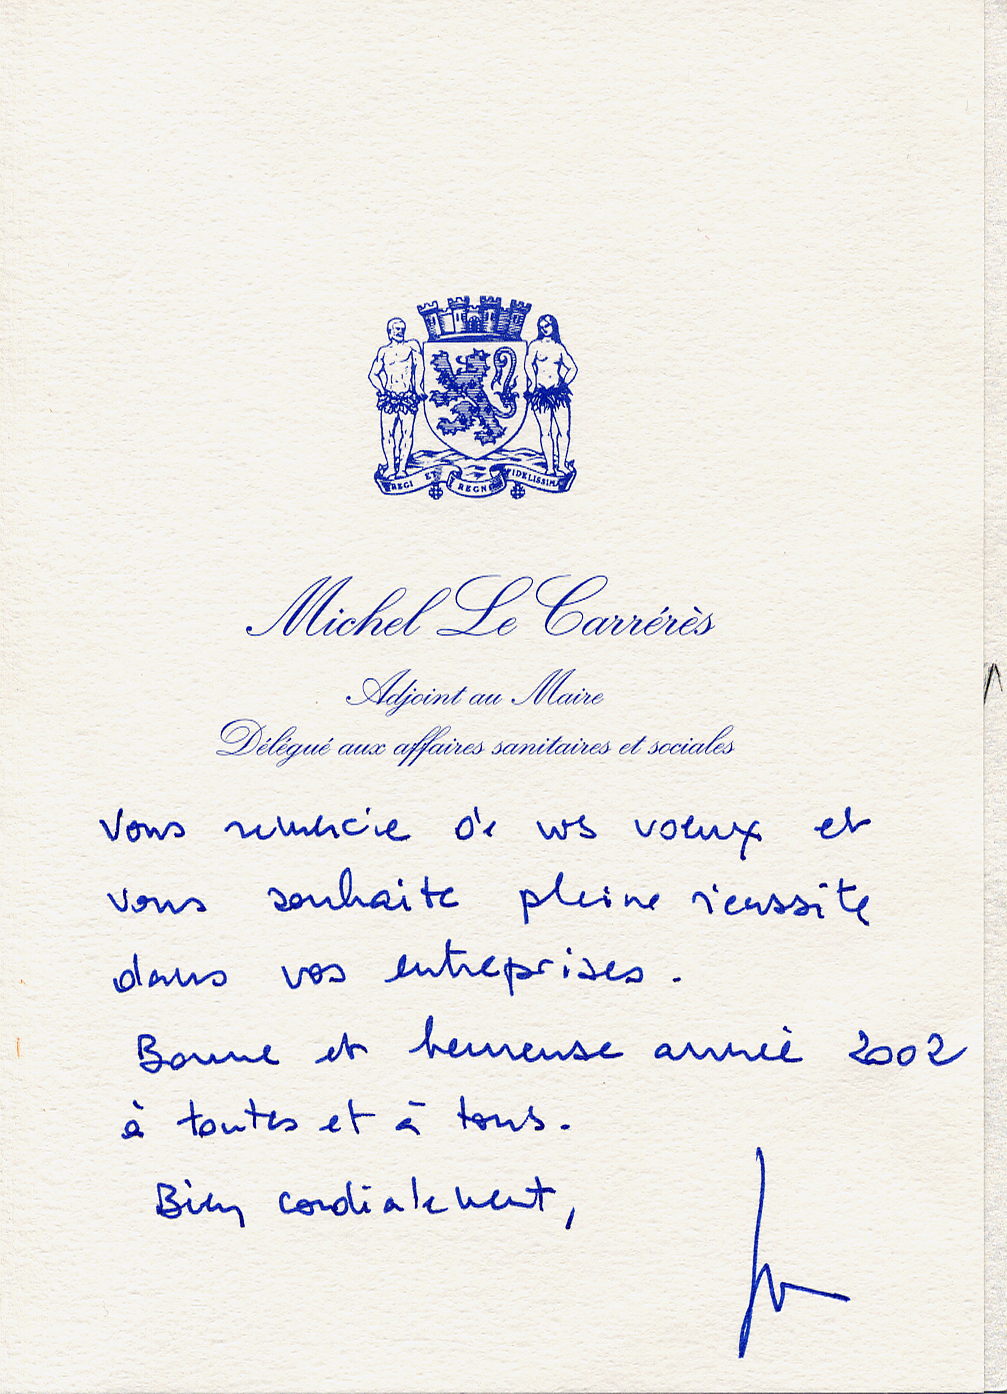 REGI ET REGNO FIDELISSIMA
Michel Le Carrérès
Adjoint au Maire
Délégué aux affaires sanitaires et sociales
Vous remercie de vos voeux et
vous souhaite pleine réussite
dans vos entreprises.
Bonne et heureuse année 2002
à toutes et à tous.
Bien cordialement,